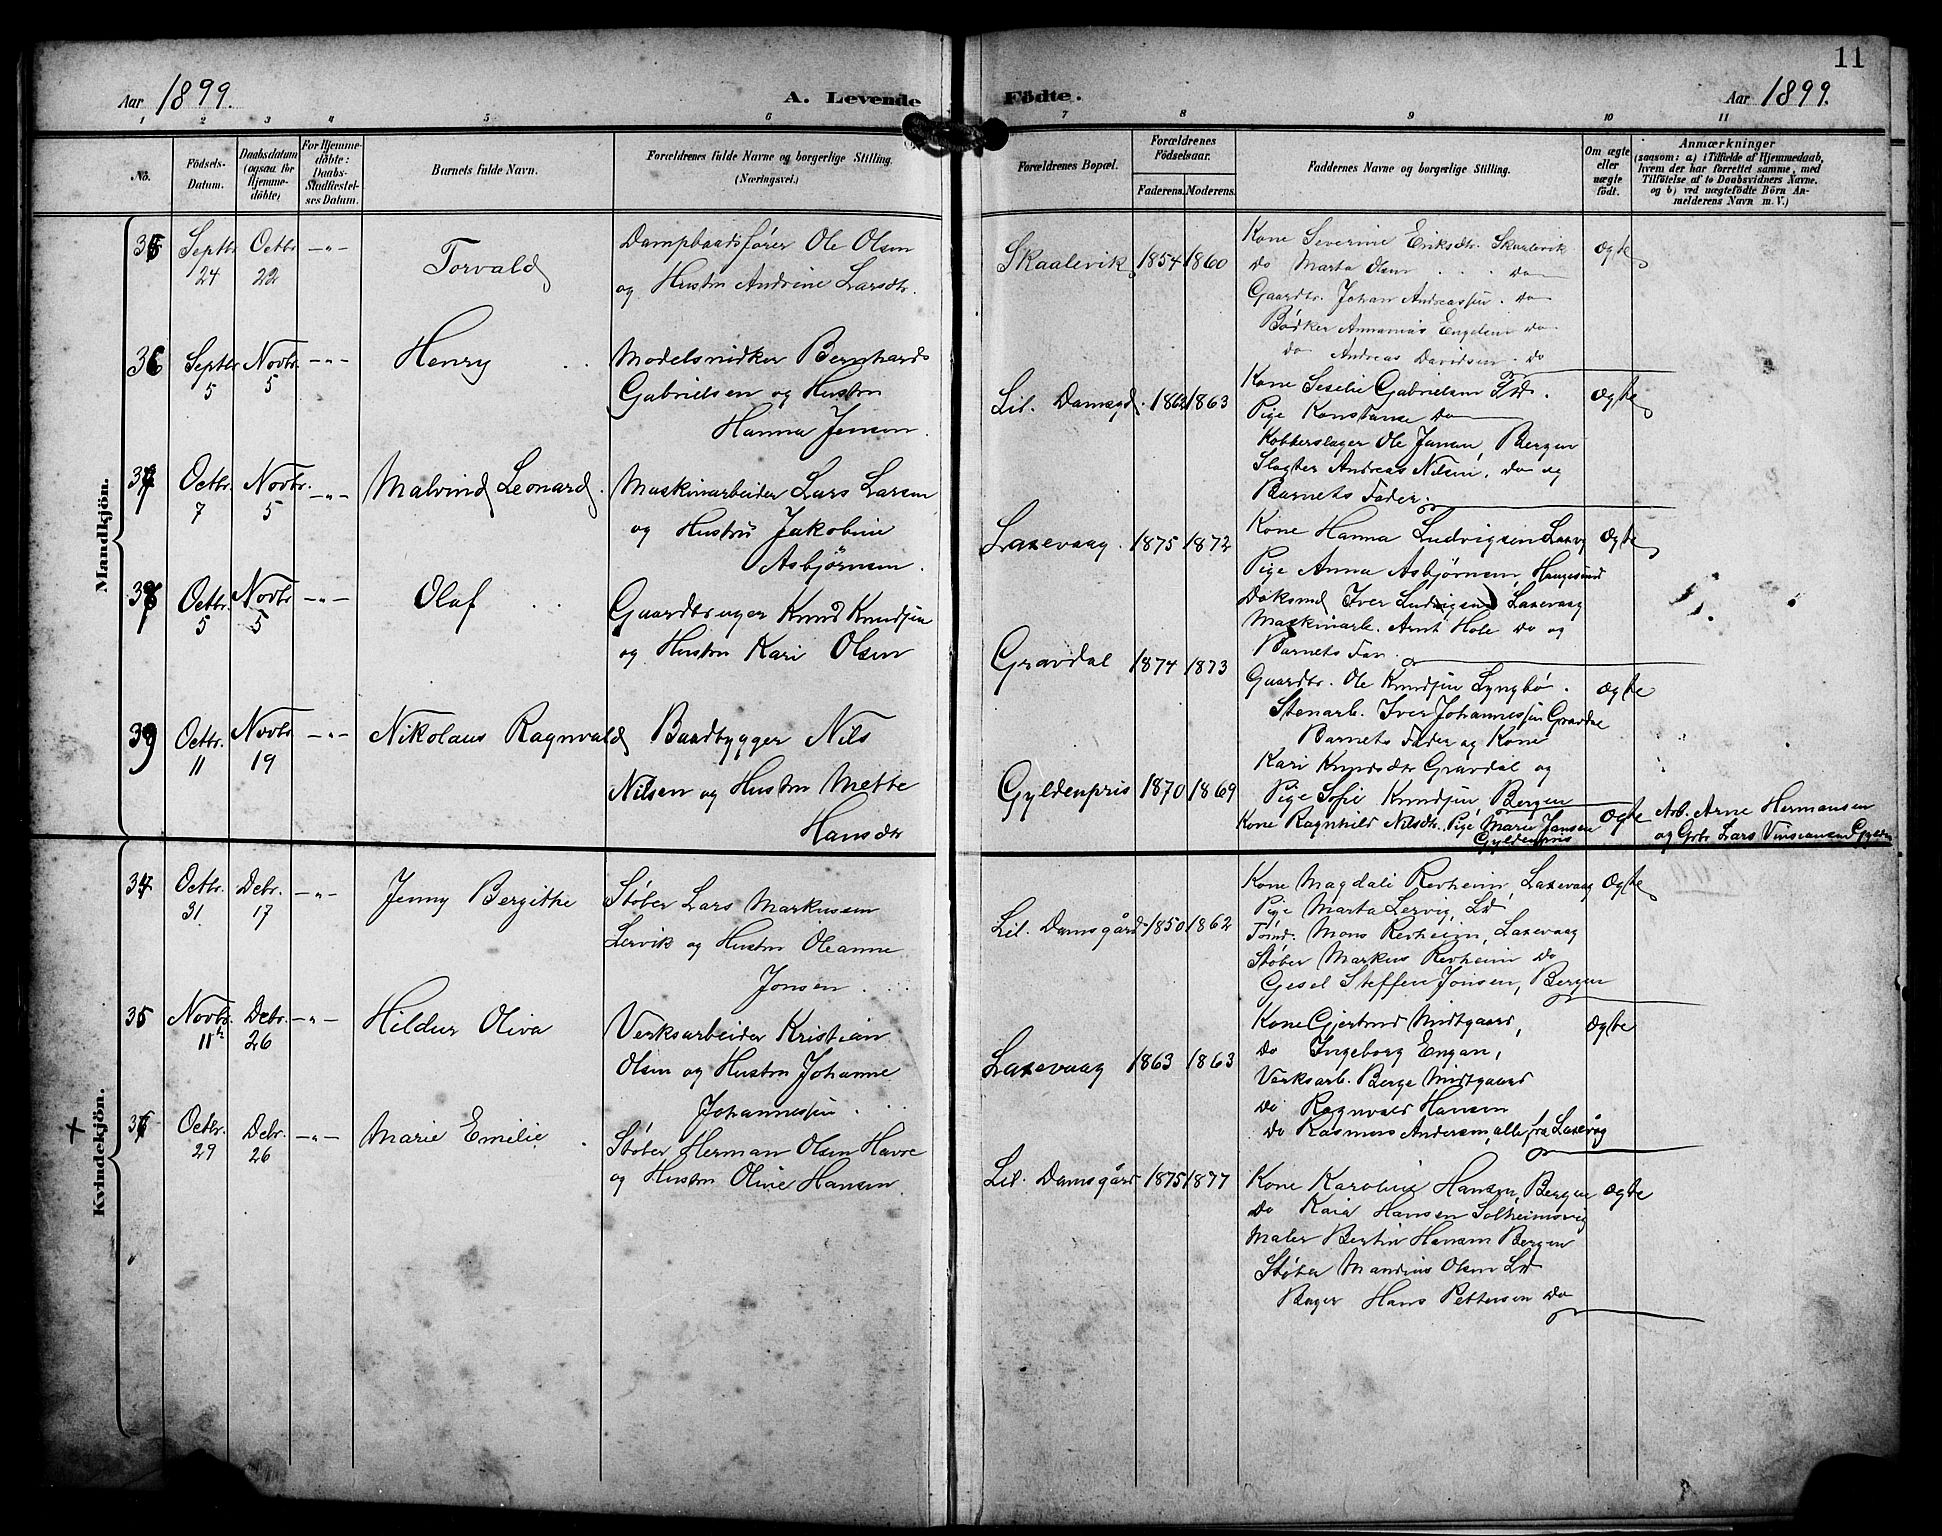 11
Aar 1899.
A. Levende Födte.
Aar 1899.
1 2 3 4 5 6 7 8 9 10 11
No.
Födsels-Datum.
Daabsdatum (ogsaa for Hjemmedöbte)
For Hjemmedöbte: Daabs-Stadfæstelses Datum.
Barnets fulde Navn.
Forældrenes fulde Navne og borgerlige Stilling.
(Næringsvei.)
Forældrenes Bopæl.
Forældrenes Födselsaar.
Faderens. Moderens.
Faddernes Navne og borgerlige Stilling.
Om ægte eller uægte födt.
Anmærkninger
(saasom: a) i Tilfælde af Hjemmedaab,
hvem der har forrettet samme, med
Tilföielse af to Daabsvidners Navne.
og b) ved uægtefödte Börn An-
melderens Navn m. V.)
Mandkjön.
35 Septbr. 24 Octbr. 22 -"- Torvald
Dampbaadsfører Ole Olsen
og Hustru Andrine Larsdtr.
Skaalevik 1854 1860
Kone Severine Eriksdtr. Skaalevik
Do Marta Olsen do
Gaardbr. Johan Andreassen. do
Bødker Annanias Engelsen do
do Andreas Davidsen. do
ægte
36 Septbr. 5 Novbr. 5 -"- Henry
Modelsnidker Bernhard
Gabrielsen og Hustru
Hanna Jensen.
Lil. Damsgd. 1862 1863
Kone Seselie Gabrielsen Ld.
Pige Konstanse do
Kobberslager Ole Jansen, Bergen
Slagter Andreas Nilsen, do og
Barnets Fader.
ægte
37 Octbr. 7 Novbr. 5 -"- Malvind Leonard.
Maskinarbeider Lars Larsen
og Hustru Jakobine
Asbjørnsen.
Laxevaag. 1875 1872
Kone Hanna Ludvigsen Laxvg
Pige Anna Asbjørnsen, Haugesund
Doksmd Iver Ludvigsen, Laxevaag
Maskinarb. Arnt Hole do og
Barnets Far.
ægte
38 Octbr. 5 Novbr 5 -"- Olaf
Gaardbruger Knud Knudsen
og Hustru Kari Olsen
Gravdal 1874 1873
Gaardbr. Ole Knudsen Lyngbø.
Stenarb. Iver Johannessen Gravdal
Barnets Fader og Kone
Kari Knudsdtr Gravdal og
Pige Sofie Knudsen, Bergen
ægte
39 Octbr. 11 Novbr 19 -"- Nikolaus Ragnvald
Baadbygger Nils
Nilsen og Hustru Mette
Hansdtr
Gyldenpris 1870 1869
Kone Ragnhild Nilsdtr. Pige Marie Jansen
Gyldenpris
ægte
Arb. Arne Hermansen
og Grbr Lars Vinsiansen Gylden
Kvindekjön.
34 Octbr. 31 Debr. 17 -"- Jenny Bergithe
Støber Lars Markussen
Lervik og Hustru Oleanne
Jonsen
Lil. Damsgård 1850 1862
Kone Magdali Revheim, Laxevaag
Pige Marta Lervig, Ld
Tømd. Mons Revheim, Laxevaag
Støber Markus Revheim do
Gesel Steffen Jonsen, Bergen
ægte
35 Novbr. 11 Debr. 26 -"- Hildur Oliva
Verksarbeider Kristian
Olsen og Hustru Johanne
Johannessen.
Laxevaag 1863 1863
Kone Gjertrud Midtgaard,
Do Ingeborg Engan,
Verksarb. Berge Midtgaard
Do Ragnvald Hansen
Do Rasmus Andersen, alle fra Laxevåg
ægte
36 Octbr. 29 Debr. 26 -"- Marie Emilie
Støber Herman Olsen Havre
og Hustru Olive Hansen.
Lil. Damsgård 1875 1877
Kone Karoline Hansen, Bergen
Do Kaia Hansen Solheimsvig
Maler Bertin Hansen Bergen
Støber Mandius Olsen Ld
Bager Hans Pettersen do
ægte